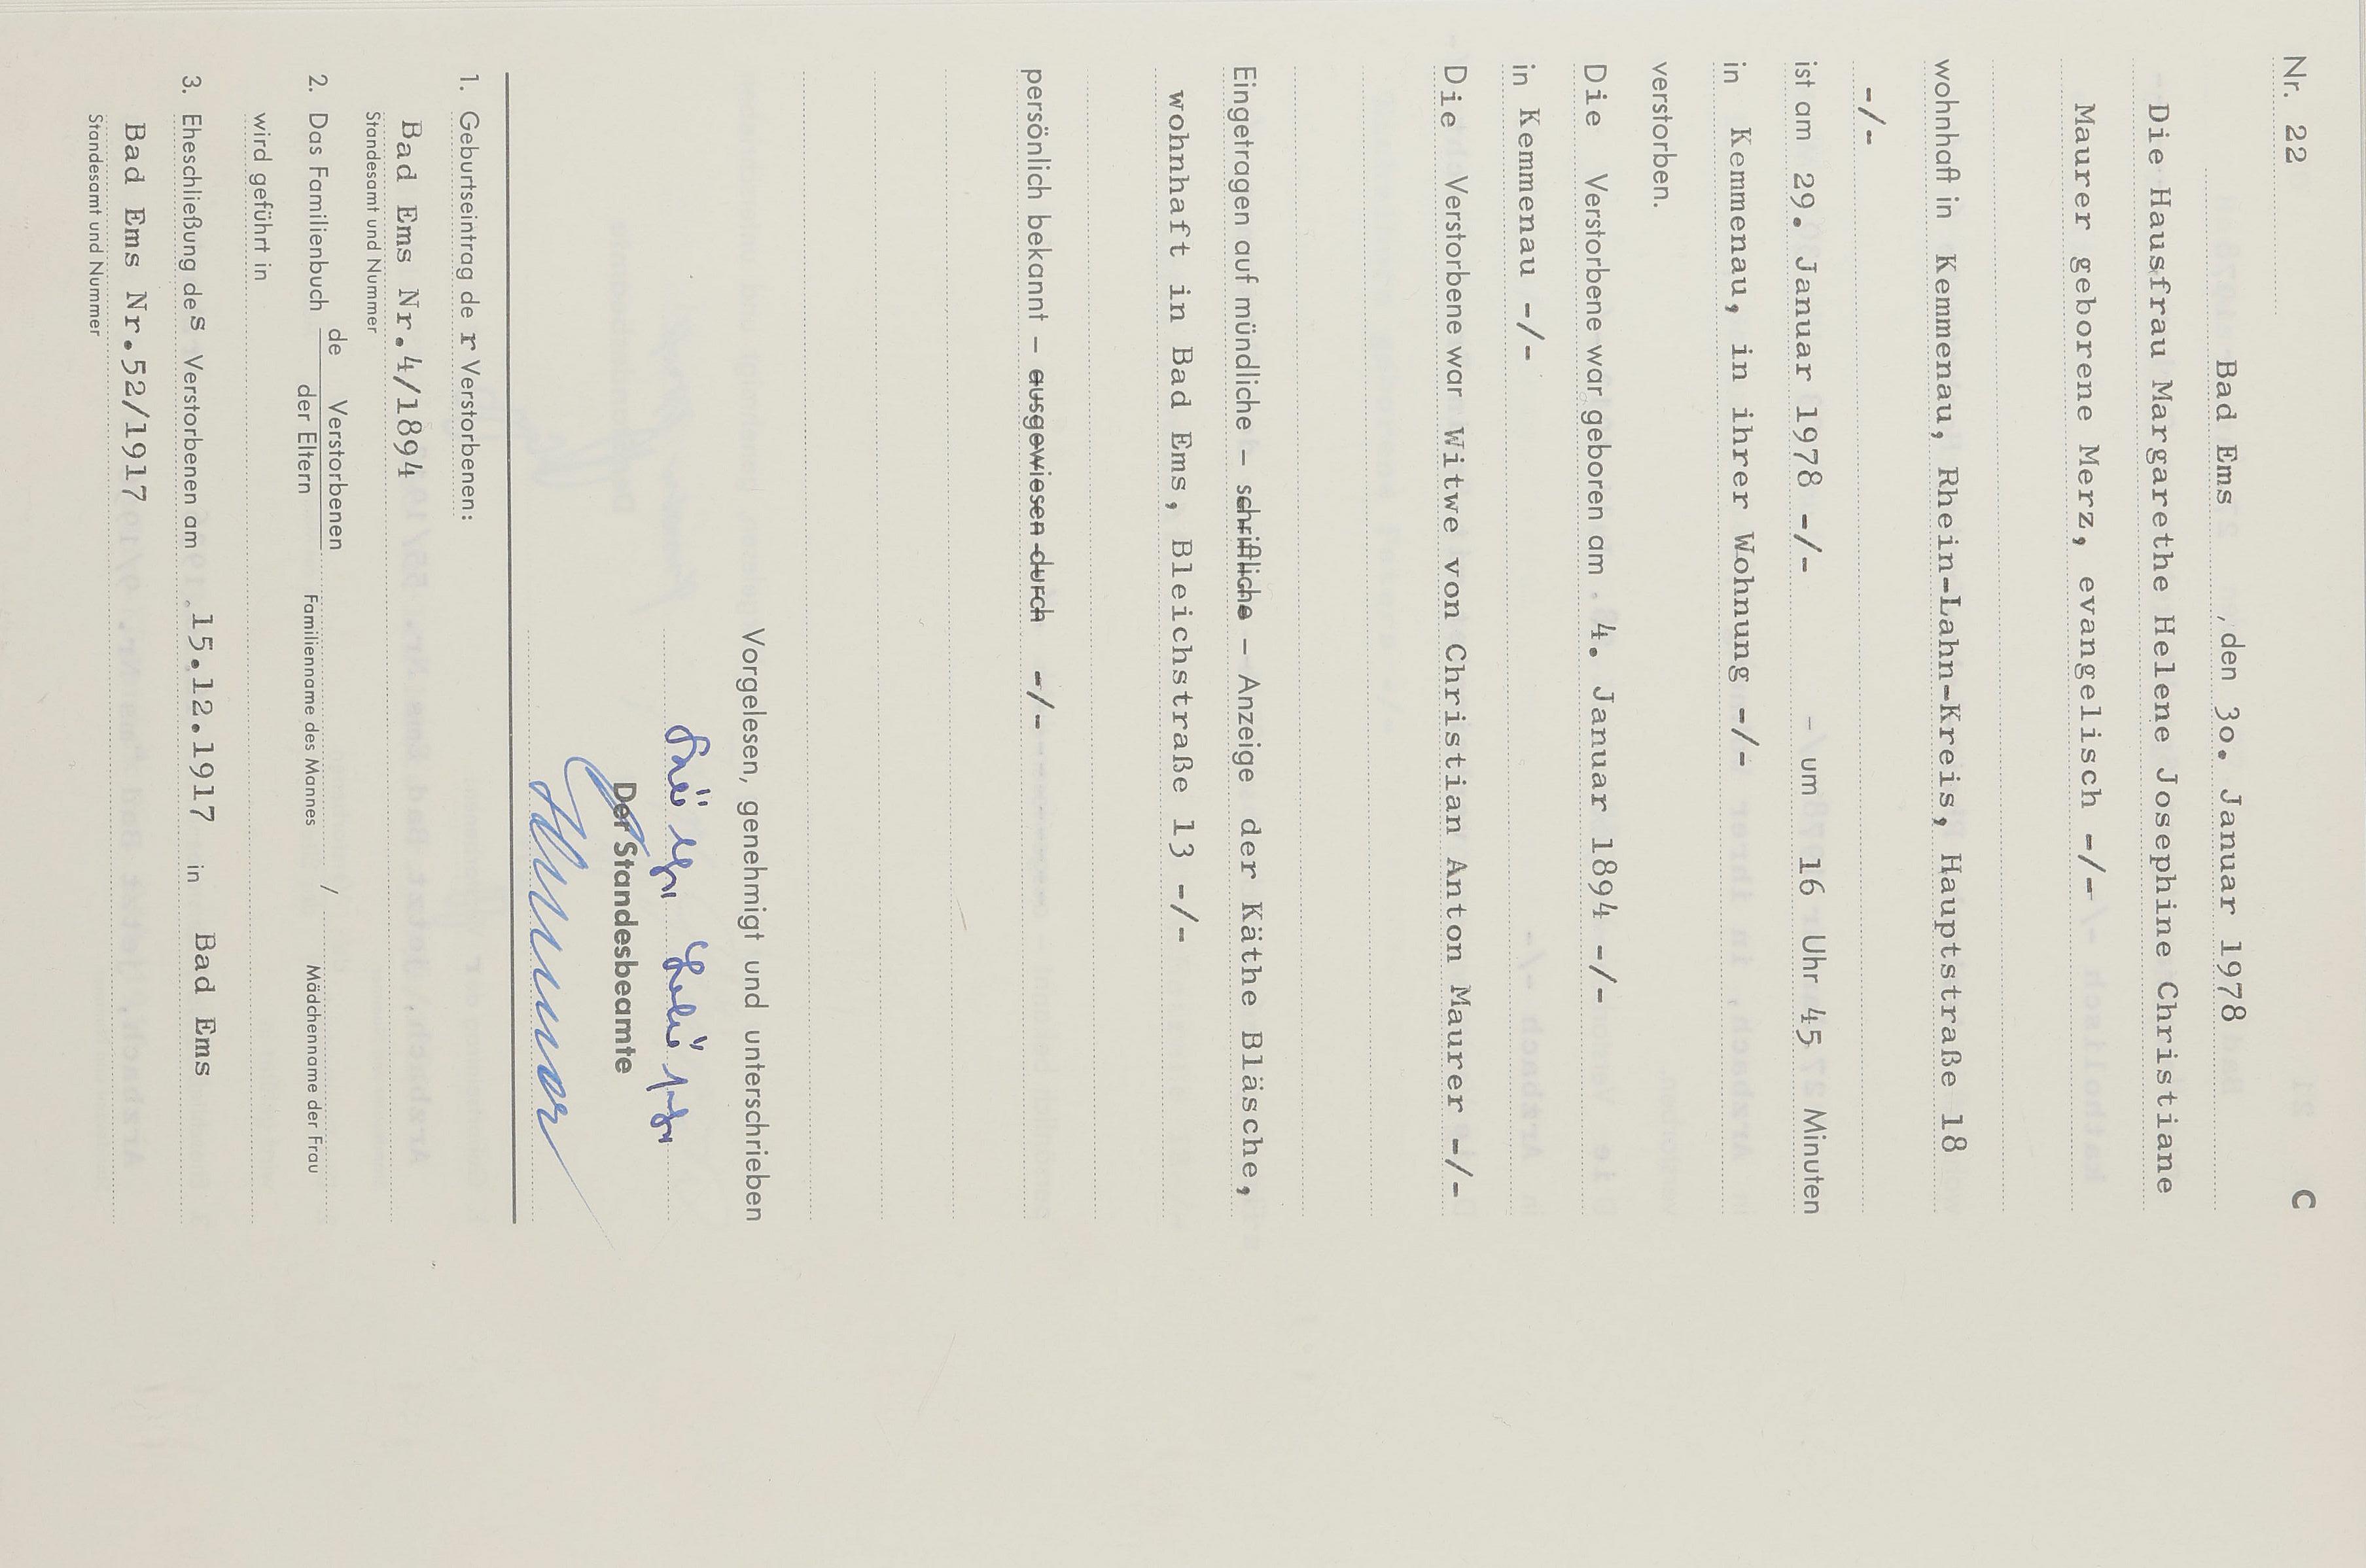 Nr. 22 C
Bad Ems , den 3o. Januar 1978
Die Hausfrau Margarethe Helene Josephine Christiane
Maurer geborene Merz, evangelisch -/-
wohnhaft in Kemmenau, Rhein-Lahn-Kreis, Hauptstraße 18
-/-
ist am 29. Januar 1978 -/- um 16 Uhr 45 Minuten
in Kemmenau, in ihrer Wohnung -/-
verstorben.
Die Verstorbene war geboren am 4. Januar 1894 -/-
in Kemmenau -/-
Die Verstorbene war Witwe von Christian Anton Maurer -/-
Eingetragen auf mündliche – schriftliche – Anzeige der Käthe Bläsche,
wohnhaft in Bad Ems, Bleichstraße 13 -/-
persönlich bekannt – ausgewiesen durch -/-
Vorgelesen, genehmigt und unterschrieben
Der Standesbeamte
1. Geburtseintrag der Verstorbenen:
Bad Ems Nr.4/1894
Standesamt und Nummer
2. Das Familienbuch de Verstorbenen
der Eltern Familienname des Mannes / Mädchenname der Frau
wird geführt in
3. Eheschließung des Verstorbenen am 15.12.1917 in Bad Ems
Bad Ems Nr.52/1917
Standesamt und Nummer